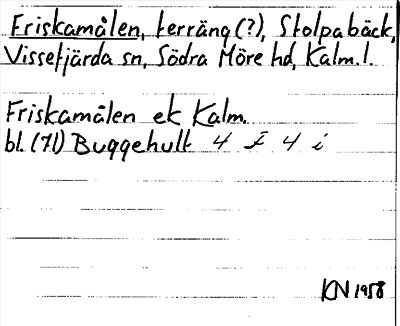 Friskamålen, terräng(?), Stolpabäck,
Vissefjärda sn, Södra Möre hd, Kalm. l.
Friskamålen ek Kalm.
bl. (71) Buggehult 4 F 4 i
KN 1958